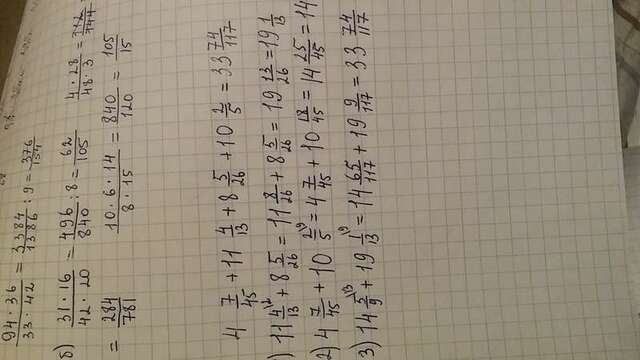 94 · 36 / 33 · 42 = 3384 / 1386 : 9 = 376 / 154
б) 31 · 16 / 42 · 20 = 496 / 840 : 8 = 62 / 105   4 · 28 / 48 · 3 = 112 / 144
= 284 / 781   10 · 6 · 14 / 8 · 15 = 840 / 120 = 105 / 15
4 7/45 + 11 4/13 + 8 5/26 + 10 2/5 = 33 74/117
) 11 4/13 \2 + 8 5/26 = 11 8/26 + 8 5/26 = 19 13/26 = 19 1/13
2) 4 7/45 + 10 2/5 \9 = 4 7/45 + 10 18/45 = 14 25/45 = 14
3) 14 5/9 \13 + 19 1/13 \9 = 14 65/117 + 19 9/117 = 33 74/117